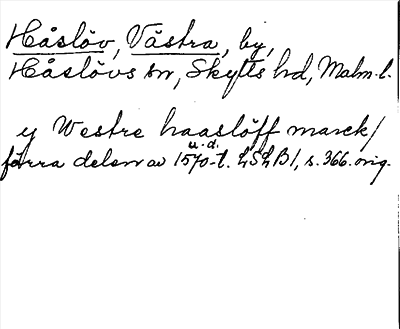 Håslöv, Västra, by,
Håslövs sn, Skytts hd, Malm. l.
y Westre haaslöff marck/
u. d.
förra delen av 1570-t. LSLB1, s. 366. orig.